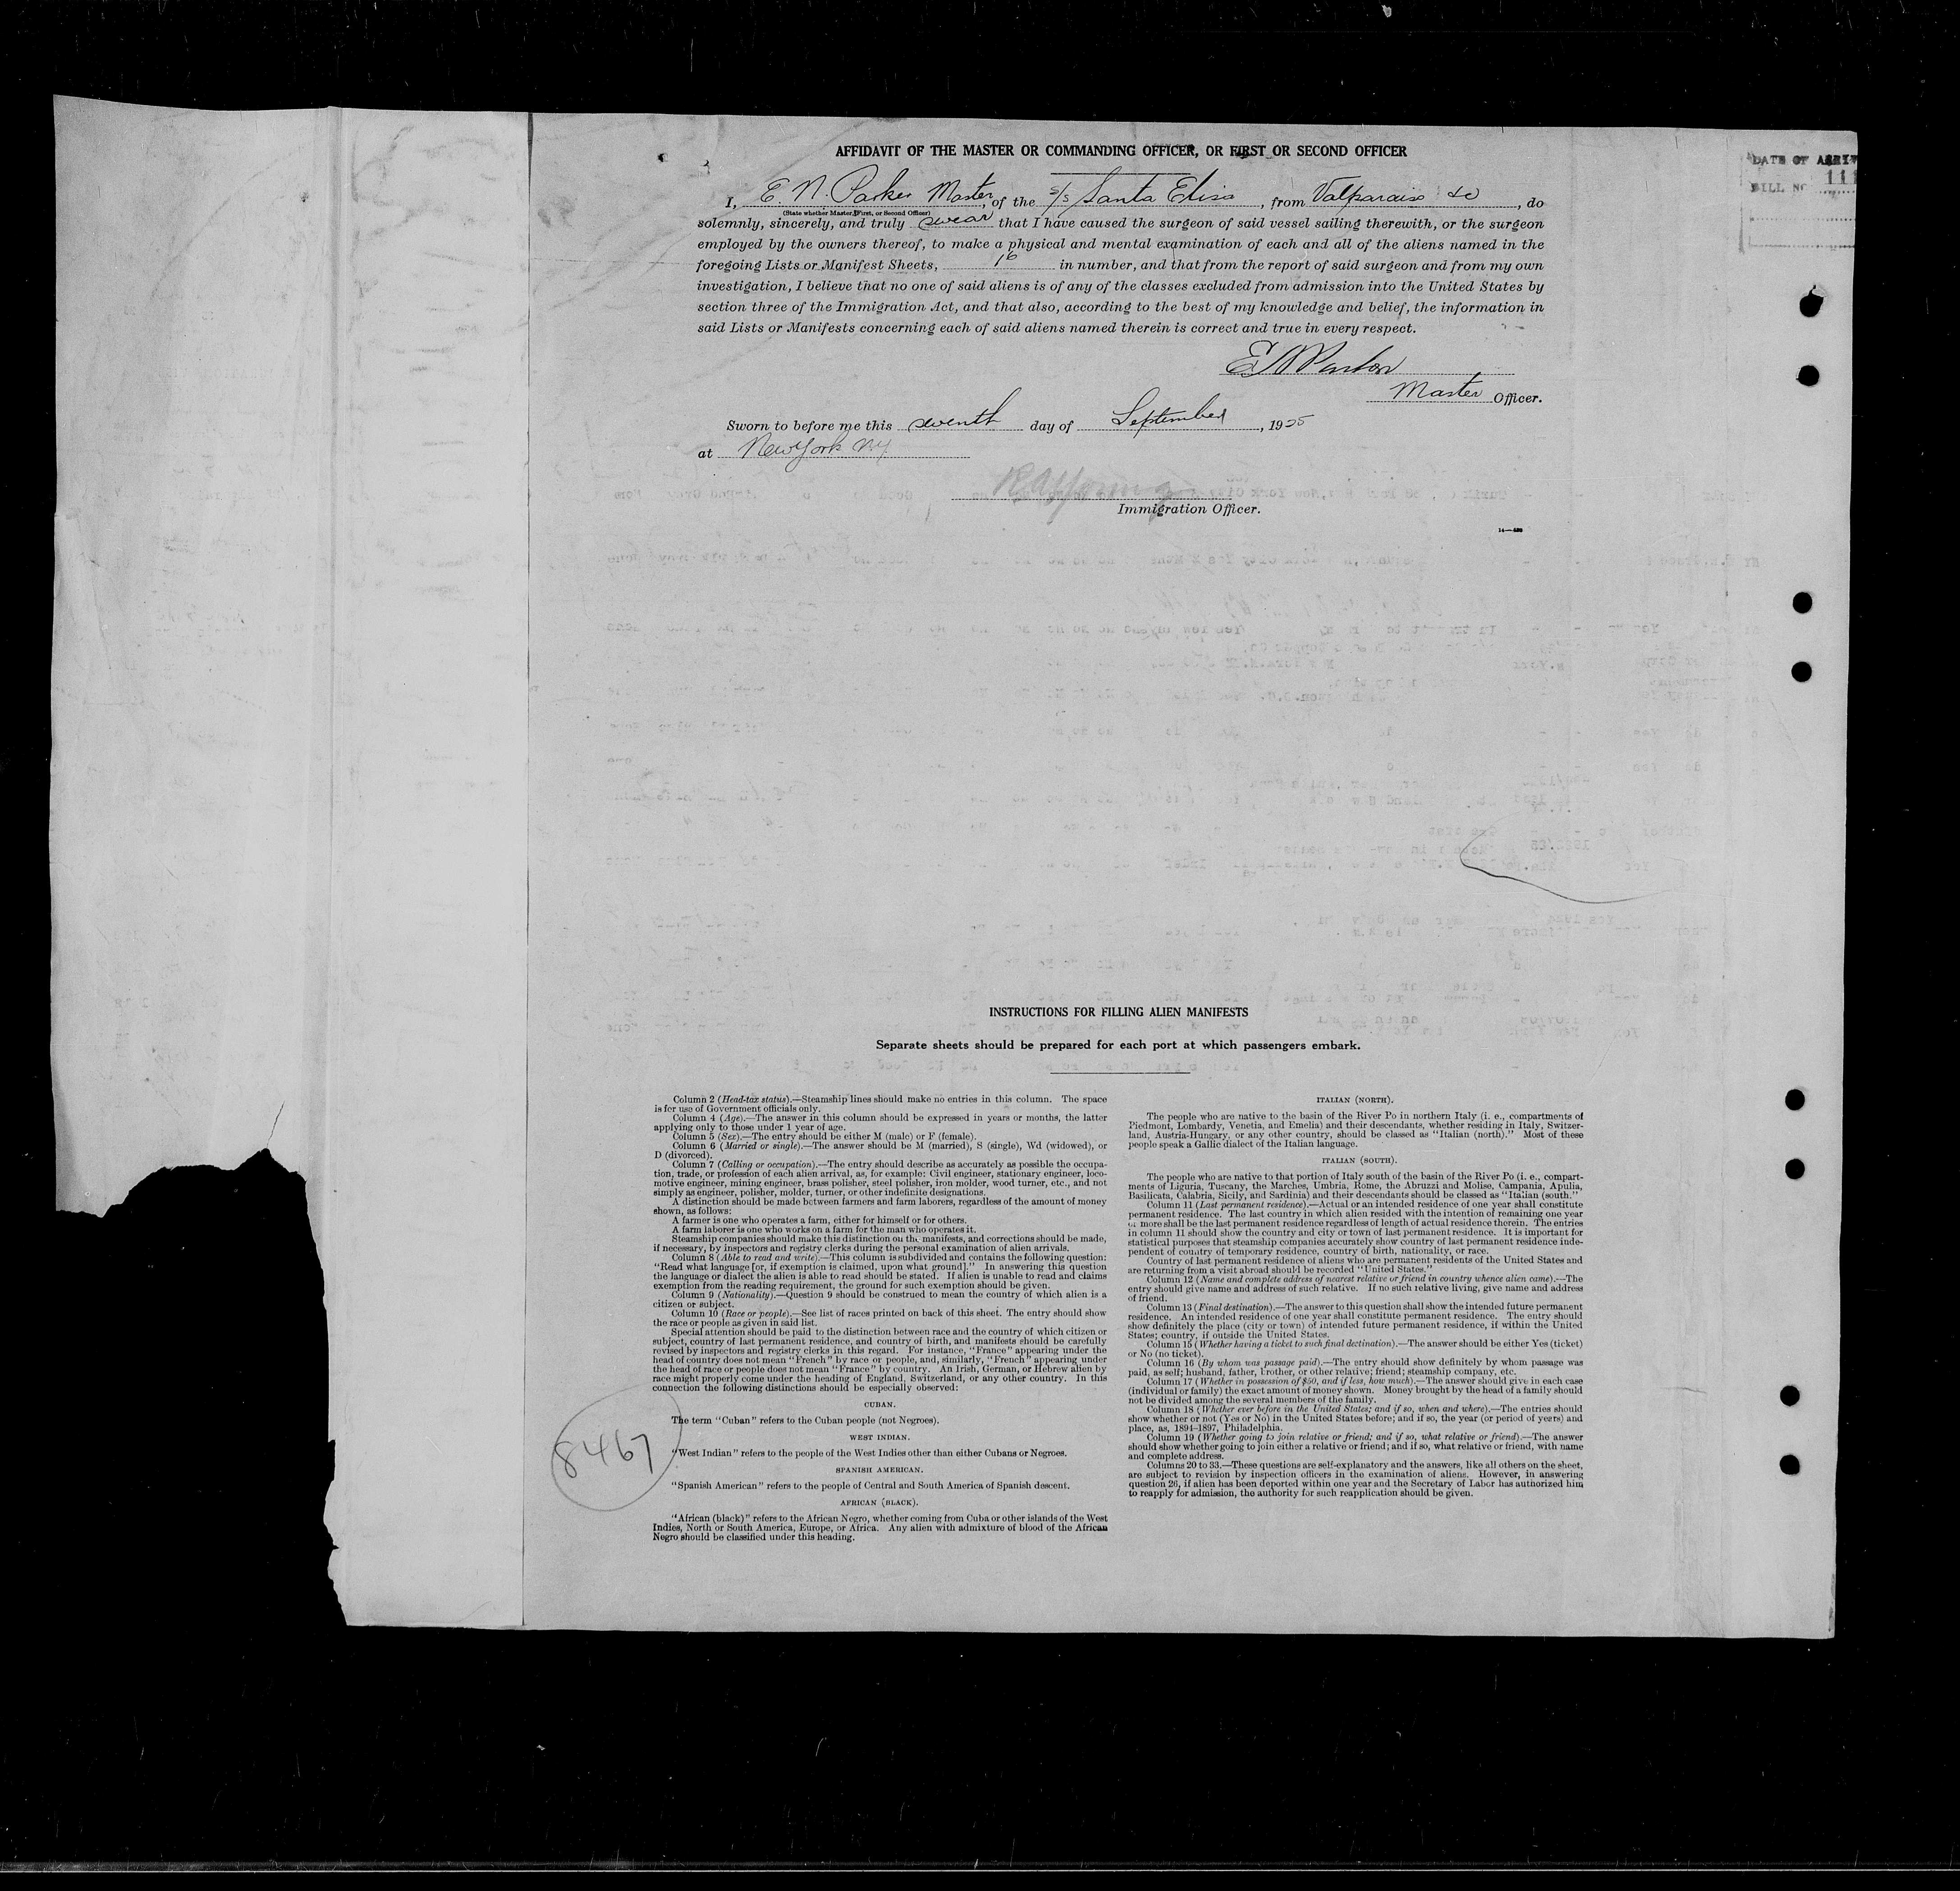 AFFIDAVIT OF THE MASTER OR COMMANDING OFFICER, OR FIRST OR SECOND OFFICER
DATE OF ARRIV
BILL NO 111
I, E. N. Parker Master, of the s/s Santa Elisa, from Valparaiso &c, do
(State whether Master, First, or Second Officer)
solemnly, sincerely, and truly swear that I have caused the surgeon of said vessel sailing therewith, or the surgeon
employed by the owners thereof, to make a physical and mental examination of each and all of the aliens named in the
foregoing Lists or Manifest Sheets, 16 in number, and that from the report of said surgeon and from my own
investigation, I believe that no one of said aliens is of any of the classes excluded from admission into the United States by
section three of the Immigration Act, and that also, according to the best of my knowledge and belief, the information in
said Lists or Manifests concerning each of said aliens named therein is correct and true in every respect.
E N Parker
Master Officer.
Sworn to before me this seventh day of September, 1925
at New York NY
Immigration Officer.
INSTRUCTIONS FOR FILLING ALIEN MANIFESTS
Separate sheets should be prepared for each port at which passengers embark.
Column 2 (Head-tax status).—Steamship lines should make no entries in this column. The space
is for use of Government officials only.
Column 4 (Age).—The answer in this column should be expressed in years or months, the latter
applying only to those under 1 year of age.
Column 5 (Sex).—The entry should be either M (male) or F (female).
Column 6 (Married or single).—The answer should be M (married), S (single), Wd (widowed), or
D (divorced).
Column 7 (Calling or occupation).—The entry should describe as accurately as possible the occupa-
tion, trade, or profession of each alien arrival, as, for example: Civil engineer, stationary engineer, loco-
motive engineer, mining engineer, brass polisher, steel polisher, iron molder, wood turner, etc., and not
simply as engineer, polisher, molder, turner, or other indefinite designations.
A distinction should be made between farmers and farm laborers, regardless of the amount of money
shown, as follows:
A farmer is one who operates a farm, either for himself or for others.
A farm laborer is one who works on a farm for the man who operates it.
Steamship companies should make this distinction on the manifests, and corrections should be made,
if necessary, by inspectors and registry clerks during the personal examination of alien arrivals.
Column 8 (Able to read and write).—This column is subdivided and contains the following question:
"Read what language [or, if exemption is claimed, upon what ground]." In answering this question
the language or dialect the alien is able to read should be stated. If alien is unable to read and claims
exemption from the reading requirement, the ground for such exemption should be given.
Column 9 (Nationality).—Question 9 should be construed to mean the country of which alien is a
citizen or subject.
Column 10 (Race or people).—See list of races printed on back of this sheet. The entry should show
the race or people as given in said list.
Special attention should be paid to the distinction between race and the country of which citizen or
subject, country of last permanent residence, and country of birth, and manifests should be carefully
revised by inspectors and registry clerks in this regard. For instance, "France" appearing under the
head of country does not mean "French" by race or people, and, similarly, "French" appearing under
the head of race or people does not mean "France" by country. An Irish, German, or Hebrew alien by
race might properly come under the heading of England, Switzerland, or any other country. In this
connection the following distinctions should be especially observed:
CUBAN.
The term "Cuban" refers to the Cuban people (not Negroes).
WEST INDIAN.
"West Indian" refers to the people of the West Indies other than either Cubans or Negroes.
SPANISH AMERICAN.
"Spanish American" refers to the people of Central and South America of Spanish descent.
AFRICAN (BLACK).
"African (black)" refers to the African Negro, whether coming from Cuba or other islands of the West
Indies, North or South America, Europe, or Africa. Any alien with admixture of blood of the African
Negro should be classified under this heading.
8467
ITALIAN (NORTH).
The people who are native to the basin of the River Po in northern Italy (i. e., compartments of
Piedmont, Lombardy, Venetia, and Emelia) and their descendants, whether residing in Italy, Switzer-
land, Austria-Hungary, or any other country, should be classed as "Italian (north)." Most of these
people speak a Gallic dialect of the Italian language.
ITALIAN (SOUTH).
The people who are native to that portion of Italy south of the basin of the River Po (i. e., compart-
ments of Liguria, Tuscany, the Marches, Umbria, Rome, the Abruzzi and Molise, Campania, Apulia,
Basilicata, Calabria, Sicily, and Sardinia) and their descendants should be classed as "Italian (south."
Column 11 (Last permanent residence).—Actual or an intended residence of one year shall constitute
permanent residence. The last country in which alien resided with the intention of remaining one year
or more shall be the last permanent residence regardless of length of actual residence therein. The entries
in column 11 should show the country and city or town of last permanent residence. It is important for
statistical purposes that steamship companies accurately show country of last permanent residence inde-
pendent of country of temporary residence, country of birth, nationality, or race.
Country of last permanent residence of aliens who are permanent residents of the United States and
are returning from a visit abroad should be recorded "United States."
Column 12 (Name and complete address of nearest relative or friend in country whence alien came).—The
entry should give name and address of such relative. If no such relative living, give name and address
of friend.
Column 13 (Final destination).—The answer to this question shall show the intended future permanent
residence. An intended residence of one year shall constitute permanent residence. The entry should
show definitely the place (city or town) of intended future permanent residence, if within the United
States; country, if outside the United States.
Column 15 (Whether having a ticket to such final destination).—The answer should be either Yes (ticket)
or No (no ticket).
Column 16 (By whom was passage paid).—The entry should show definitely by whom passage was
paid, as self; husband, father, brother, or other relative; friend; steamship company, etc.
Column 17 (Whether in possession of $50, and if less, how much).—The answer should give in each case
(individual or family) the exact amount of money shown. Money brought by the head of a family should
not be divided among the several members of the family.
Column 18 (Whether ever before in the United States; and if so, when and where).—The entries should
show whether or not (Yes or No) in the United States before; and if so, the year (or period of years) and
place, as, 1894–1897, Philadelphia.
Column 19 (Whether going to join relative or friend; and if so, what relative or friend).—The answer
should show whether going to join either a relative or friend; and if so, what relative or friend, with name
and complete address.
Columns 20 to 33.—These questions are self-explanatory and the answers, like all others on the sheet,
are subject to revision by inspection officers in the examination of aliens. However, in answering
question 26, if alien has been deported within one year and the Secretary of Labor has authorized him
to reapply for admission, the authority for such reapplication should be given.